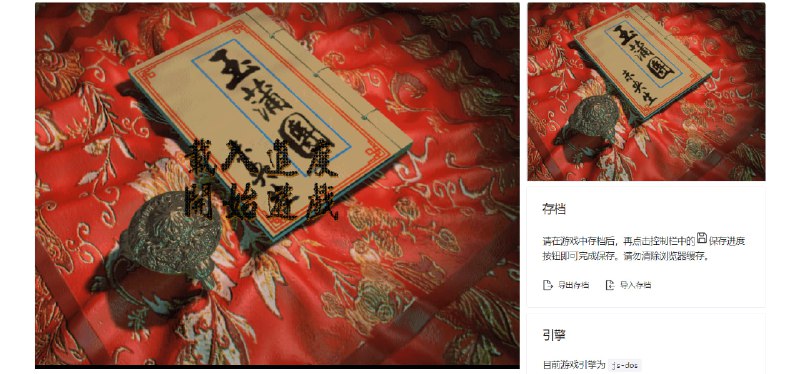 玉蒲團
載入進度
開始遊戲
玉蒲團
未央生
存档
请在游戏中存档后，再点击控制栏中的保存进度
按钮即可完成保存。请勿清除浏览器缓存。
导出存档 导入存档
引擎
目前游戏引擎为 js-dos